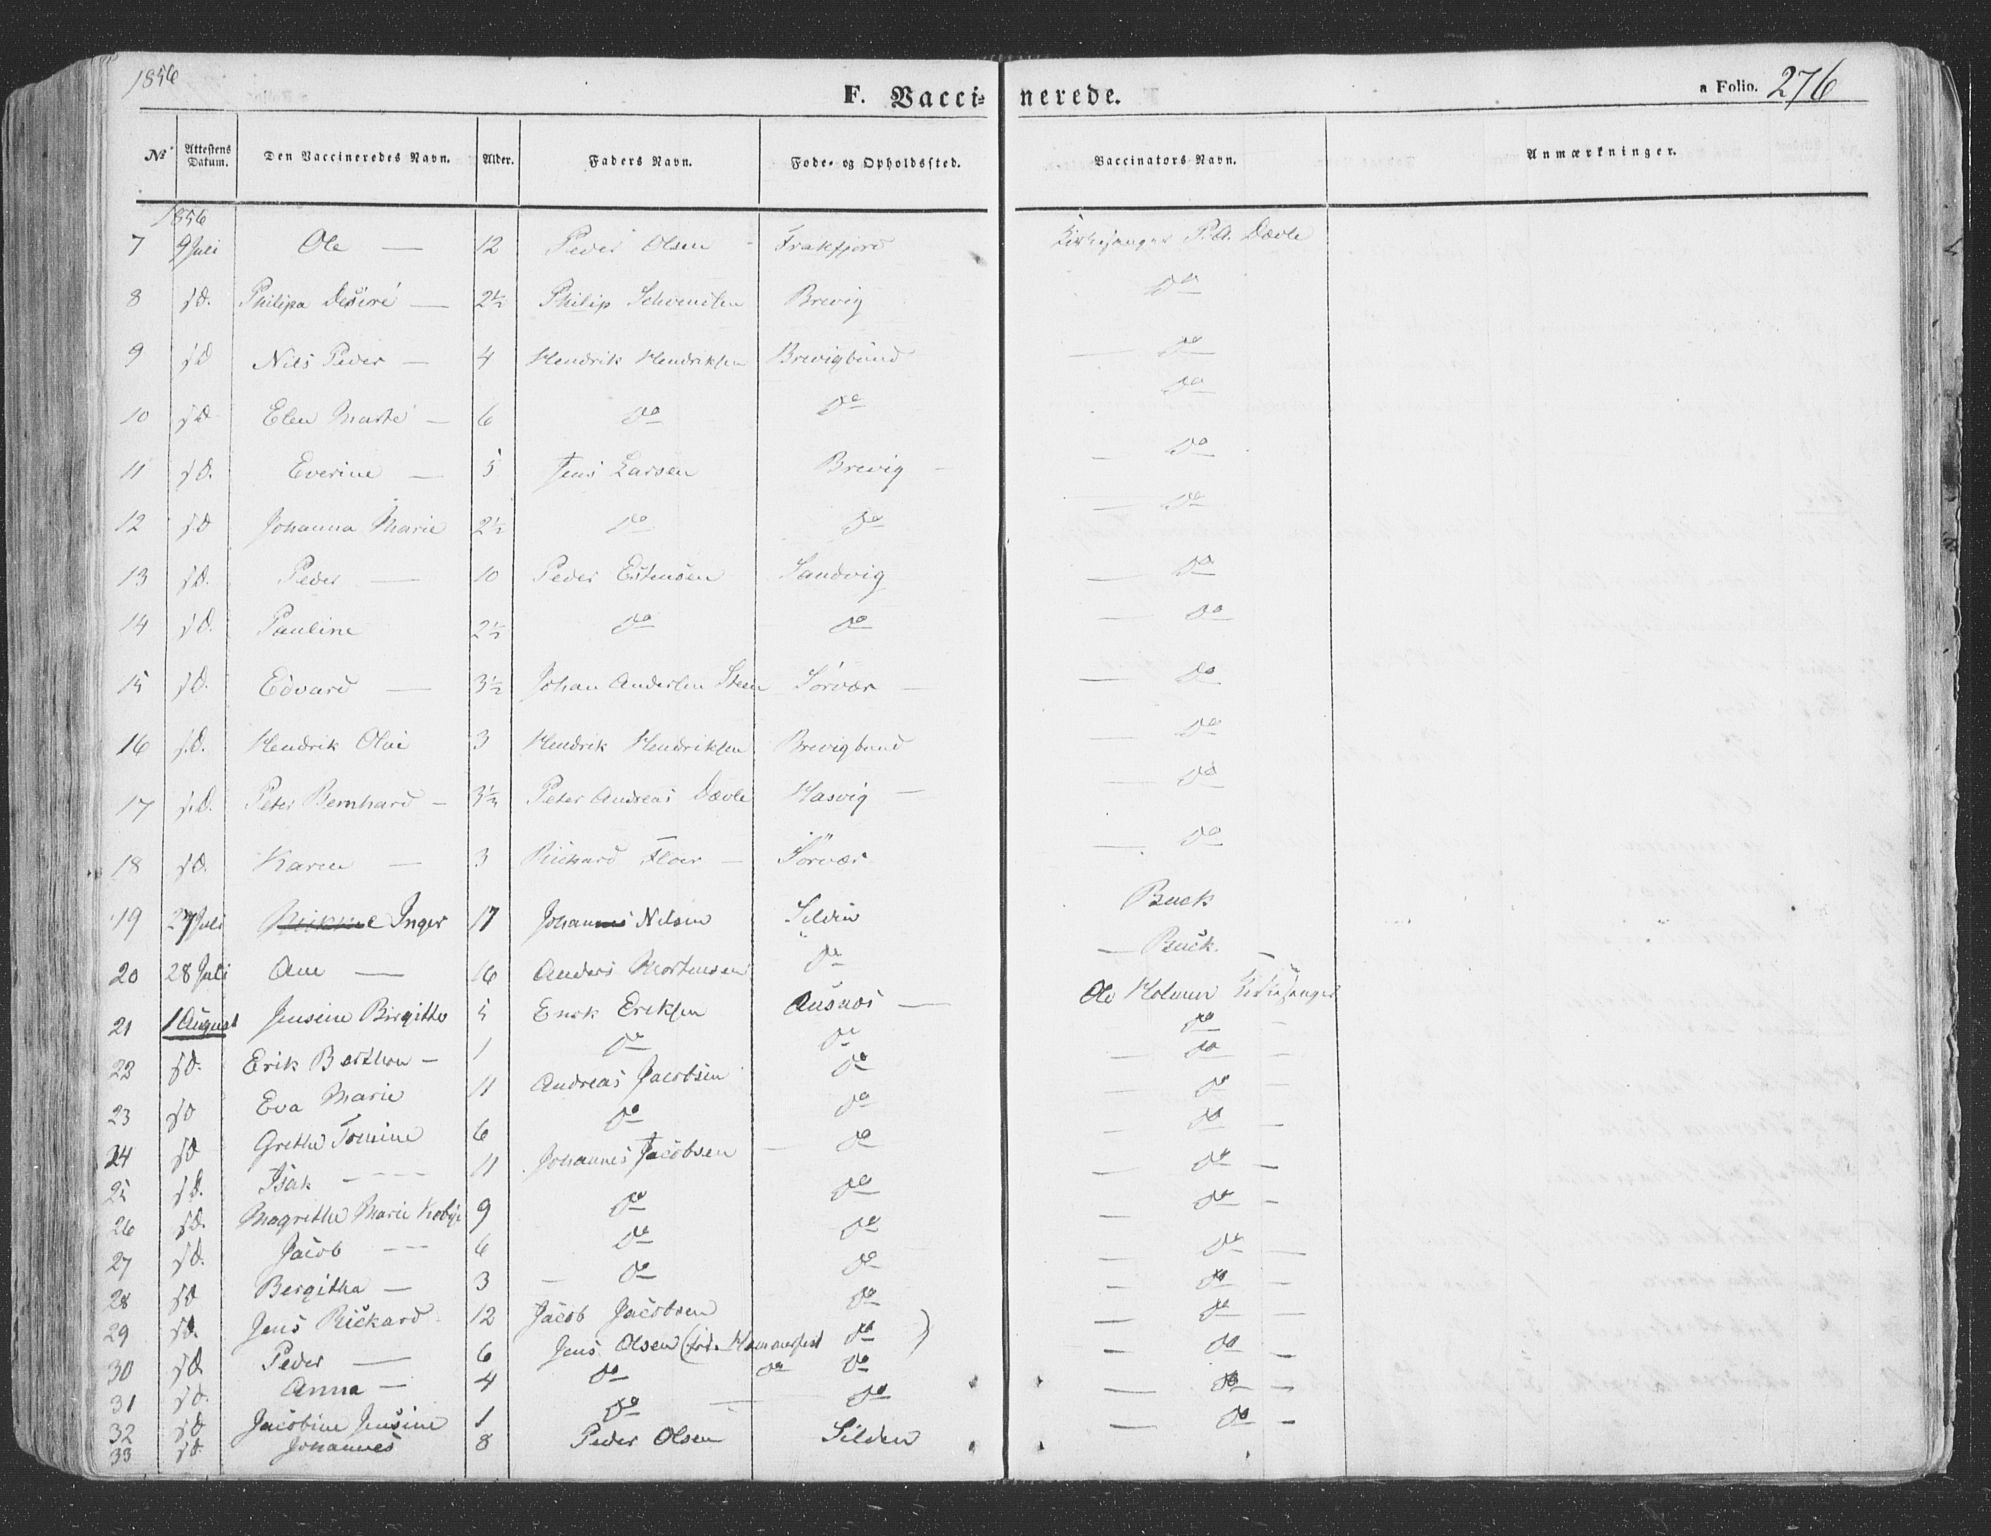 1856
F. Vacci- nerede.
a Folio. 276
No Attestens Datum. Den Vaccineredes Navn. Alder. Faders Navn. Føde- og Opholdssted. Vaccinators Navn. Anmærkninger.
1856
7 9 Juli Ole — 12 Peder Olsen - Frakfjord Kirkesanger P. A. Dævle
8 s.D. Philipa Desiré — 2½ Philip Brevig Do
9 s.D. Nils Peder — 4 Hendrik Hendriksen Brevigbund — Do
10 s.D. Elen Marte — 6 Do Do Do
11 s.D. Everine — 5 Jens Larsen Brevig — — Do
12 s.D. Johanna Marie 2½ Do Do — Do
13 s.D. Peder — 10 Peder Estensen Sandvig — Do
14 s.D. Pauline 2½ Do Do — Do
15 s.D. Edvard — 3½ Johan Andersen Steen Sørvær — — Do
16 s.D. Hendrik Olai 3 Hendrik Hendriksen Brevigbund — Do
17 s.D. Peter Bernhard — 3½ Peter Andreas Dævle Hasvig — — Do
18 s.D. Karen — 3 Richard Floer — Sørvær — Do
19 27 Juli Inger 17 Johannes Nilsen Silden Buck
20 28 Juli Ane — 16 Anders Mortensen Do — Buck. —
21 1 August Jensine Birgitte 5 Erik Eriksen Ausnæs — Ole Holmer Kirkesanger
22 s.D. Erik Berthen — 1 Do Do Do —
23 s.D. Eva Marie 11 Andreas Jacobsen Do — Do —
24 s.D. Grethe Tomine 6 Do Do — Do —
25 s.D. Isak — — — 11 Johannes Jacobsen — Do — Do —
26 s.D. Magrethe Marie 9 Do Do — Do —
27 s.D. Jacob — — — 6 Do Do — Do —
28 s.D. Bergitha — 3 — Do Do — Do —
29 s.D. Jens Rickard 12 Jacob Jacobsen Do — Do —
30 s.D. Peder — 6 Jens Olsen (fød. Hammerfest Do ) — Do —
31 s.D. Anna — 4 Do Do Do — Do —
32 s.D. Jacobine Jensine 1 Do — Do — Do —
33 s.D. Johannes 8 Peder Olsen Silden — Do —